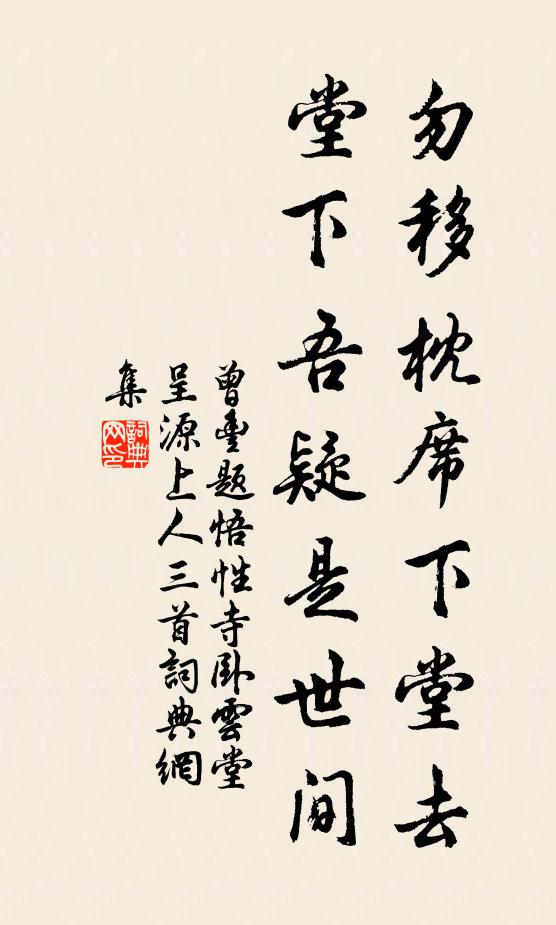 勿移枕席下堂去
堂下吾疑是世间
曾豊题悟性寺卧雲堂
呈源上人三首詞典網
集
詞典
网印